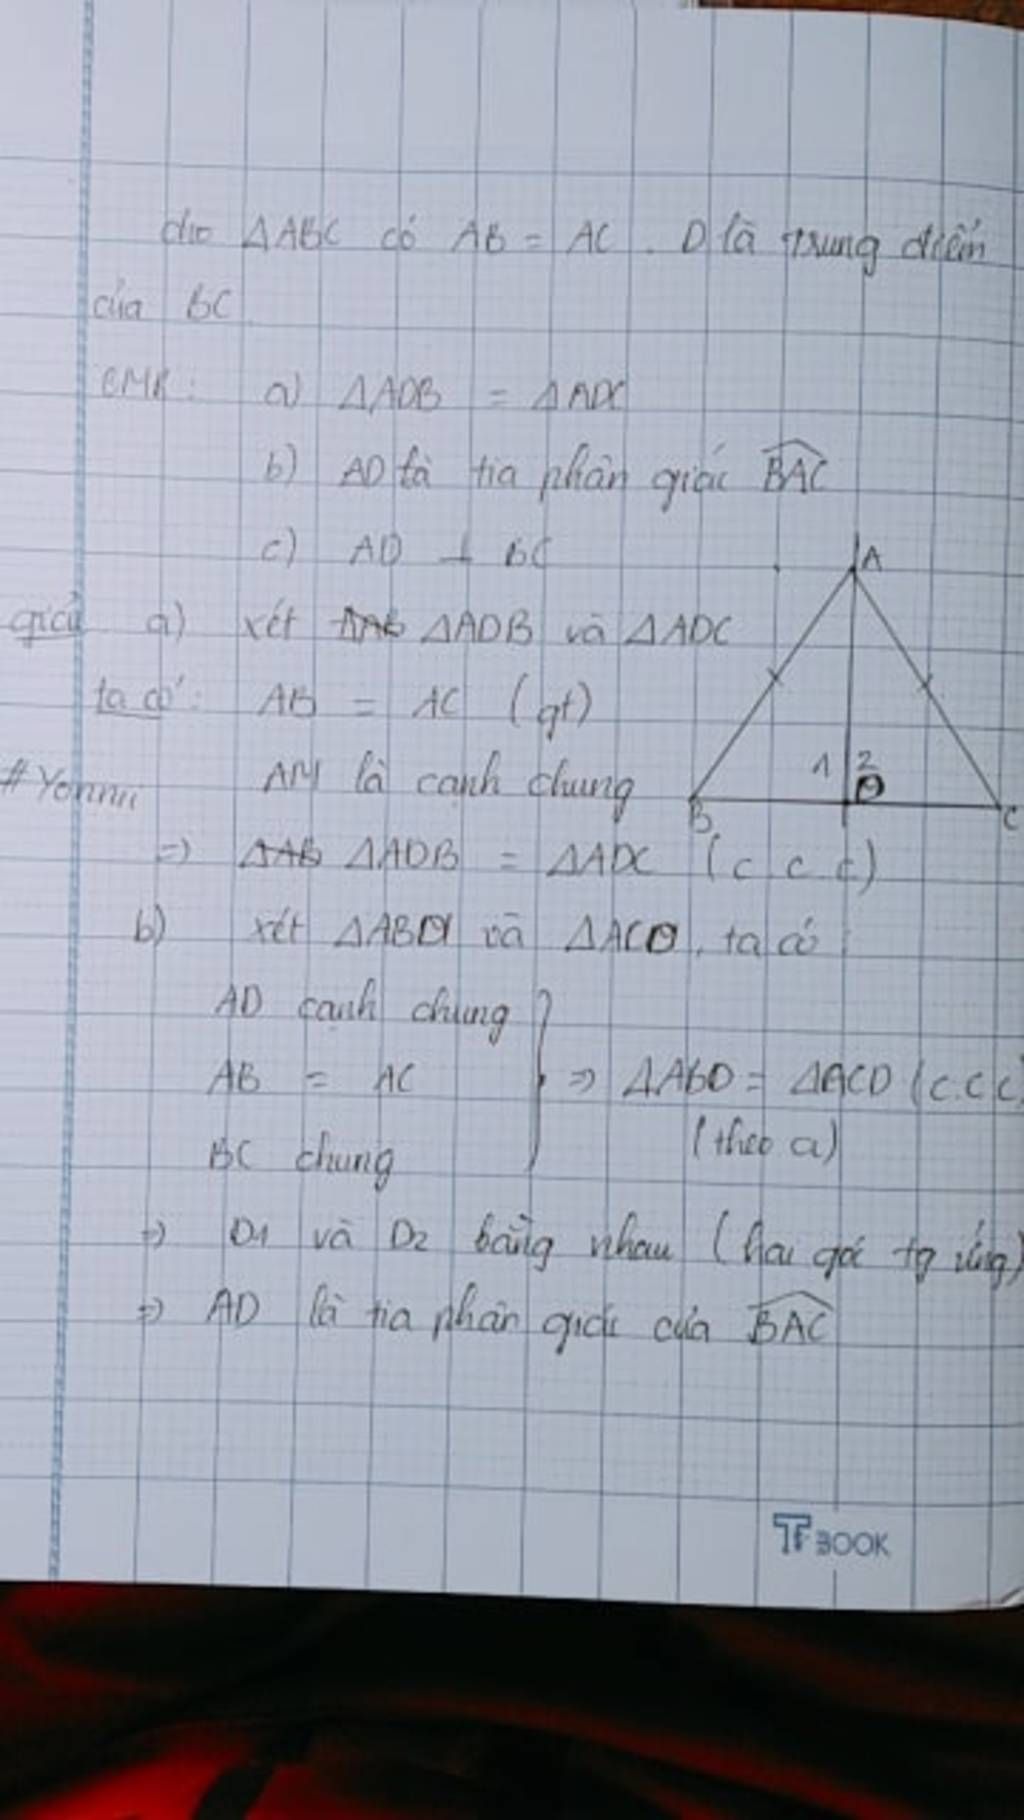 cho ΔABC có AB = AC. D là trung điểm
của BC
CMR: a) ΔADB = ΔADC
b) AD là tia phân giác BAC
c) AD ⊥ BC
A
giải a) xét ΔADB và ΔADC
ta có: AB = AC (gt)
1 2
D
#Yonnii AM là cạnh chung
B C
=> ΔAB ΔADB = ΔADC (c c c)
b) xét ΔABD và ΔACD, ta có:
AD cạnh chung
AB = AC => ΔABD = ΔACD (c.c.c)
(theo a)
BC chung
=> D1 và D2 bằng nhau (hai góc tg ứng)
=> AD là tia phân giác của BAC
TF BOOK